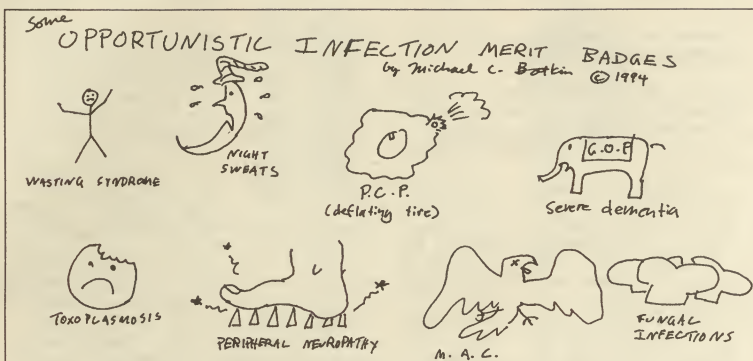 Some
OPPORTUNISTIC INFECTION MERIT BADGES
by Michael C. Botkin © 1994
WASTING SYNDROME
NIGHT
SWEATS
P.C.P.
(deflating tire)
G.O.P
Severe dementia
TOXOPLASMOSIS
PERIPHERAL NEUROPATHY
M. A. C.
FUNGAL
INFECTIONS